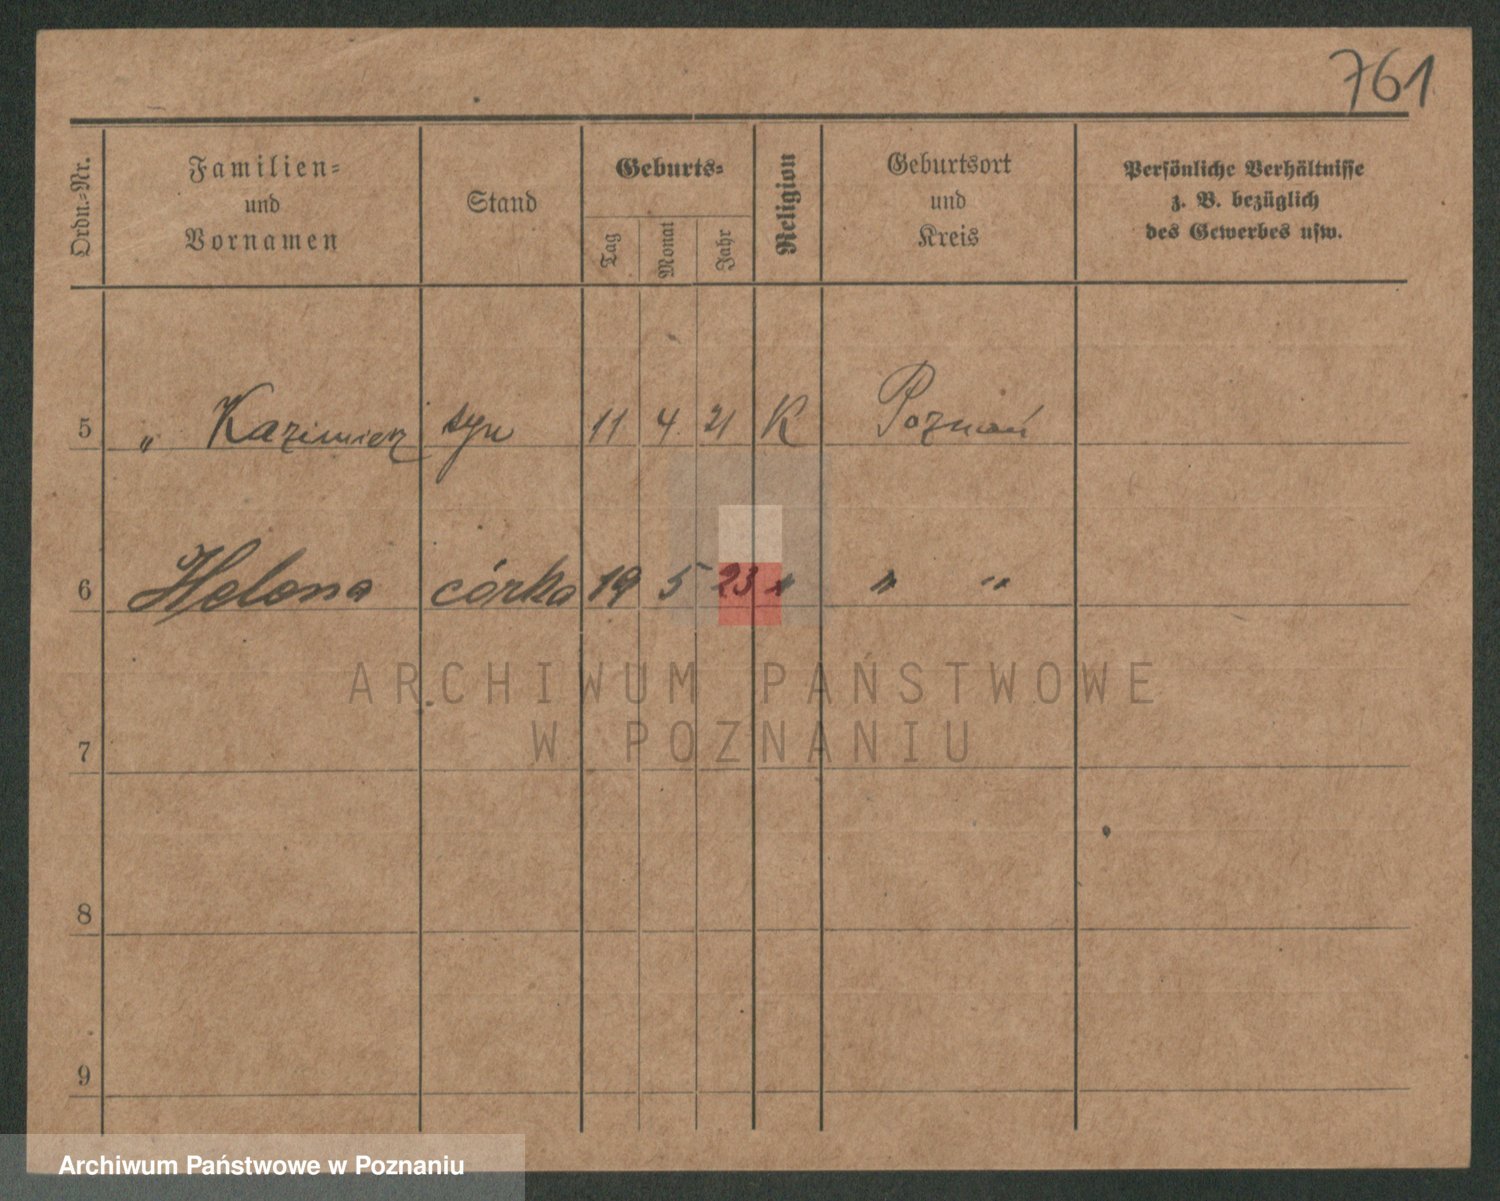 761
Ordn.-Nr.
Familien-
und
Vornamen
Stand
Geburts-
Tag
Monat
Jahr
Religion
Geburtsort
und
Kreis
Persönliche Verhältnisse
z. B. bezüglich
des Gewerbes usw.
5 " Kazimierz syn 11 4 21 K Poznań
6 Helena córka 19 5 23 " " "
ARCHIWUM PAŃSTWOWE
W POZNANIU
7
8
9
Archiwum Państwowe w Poznaniu